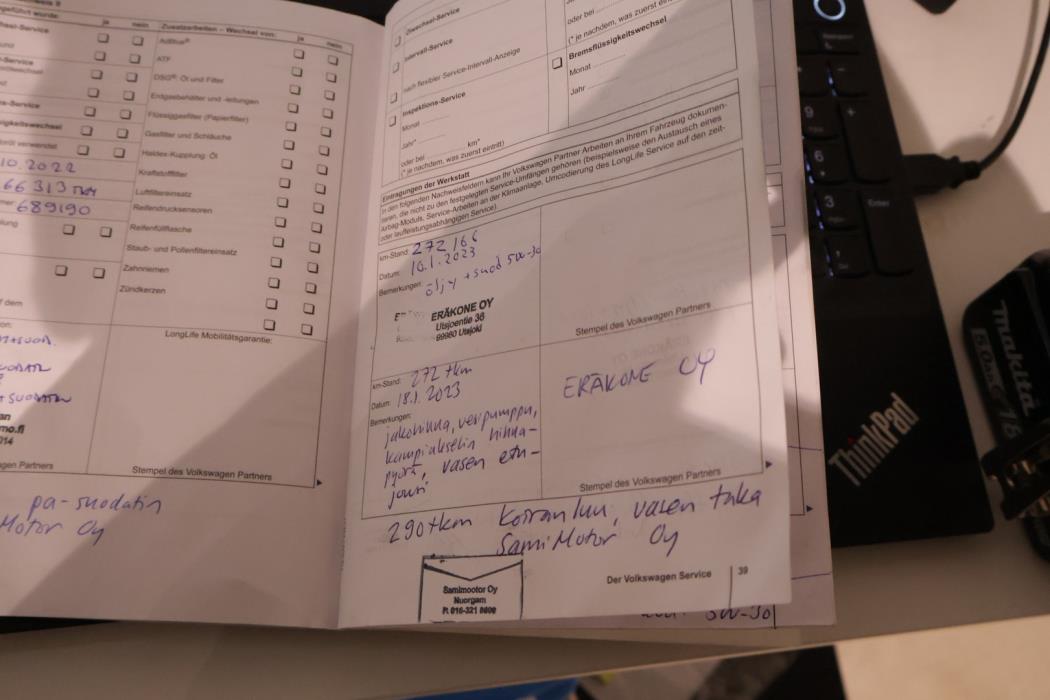 ja nein
Zusatzarbeiten – Wechsel von: ja nein
AdBlue®
ATF
DSG®: Öl und Filter
Erdgasbehälter und -leitungen
Flüssiggasfilter (Papierfilter)
Gasfilter und Schläuche
Haldex-Kupplung: Öl
Kraftstofffilter
Luftfiltereinsatz
Reifendrucksensoren
Reifenfüllflasche
Staub- und Pollenfiltereinsatz
Zahnriemen
Zündkerzen
10.2022
66 313 TKM
689190
LongLife Mobilitätsgarantie:
Stempel des Volkswagen Partners
pa-suodatin
Motor Oy
Ölwechsel-Service
Intervall-Service
nach flexibler Service-Intervall-Anzeige
Inspektions-Service
Monat
Jahr*
oder bei km*
(* je nachdem, was zuerst eintritt)
oder bei
(* je nachdem, was zuerst
Bremsflüssigkeitswechsel
Monat
Jahr
Eintragungen der Werkstatt
In den folgenden Nachweisfeldern kann Ihr Volkswagen Partner Arbeiten an Ihrem Fahrzeug dokumen-
tieren, die nicht zu den festgelegten Service-Umfängen gehören (beispielsweise den Austausch eines
Airbag-Moduls, Service-Arbeiten an der Klimaanlage, Umcodierung des LongLife Service auf den zeit-
oder laufleistungsabhängigen Service).
km-Stand: 272 166
Datum: 10.1.2023
Bemerkungen: öljy + suod 5W-30
ERÄKONE OY
Utsjoentie 36
99980 Utsjoki
Stempel des Volkswagen Partners
km-Stand: 272 tkm
Datum: 18.1.2023
Bemerkungen:
jakohihna, vesipumppu,
kampiakselin hihna-
pyörä, vasen etu-
jousi
ERÄKONE OY
Stempel des Volkswagen Partners
290 tkm Koiranluu, vasen taka
SamiMotor Oy
Samimootor Oy
Nuorgam
Der Volkswagen Service 39
5W-30
9 +
6
3 Enter
ThinkPad
makita
5.0Ah